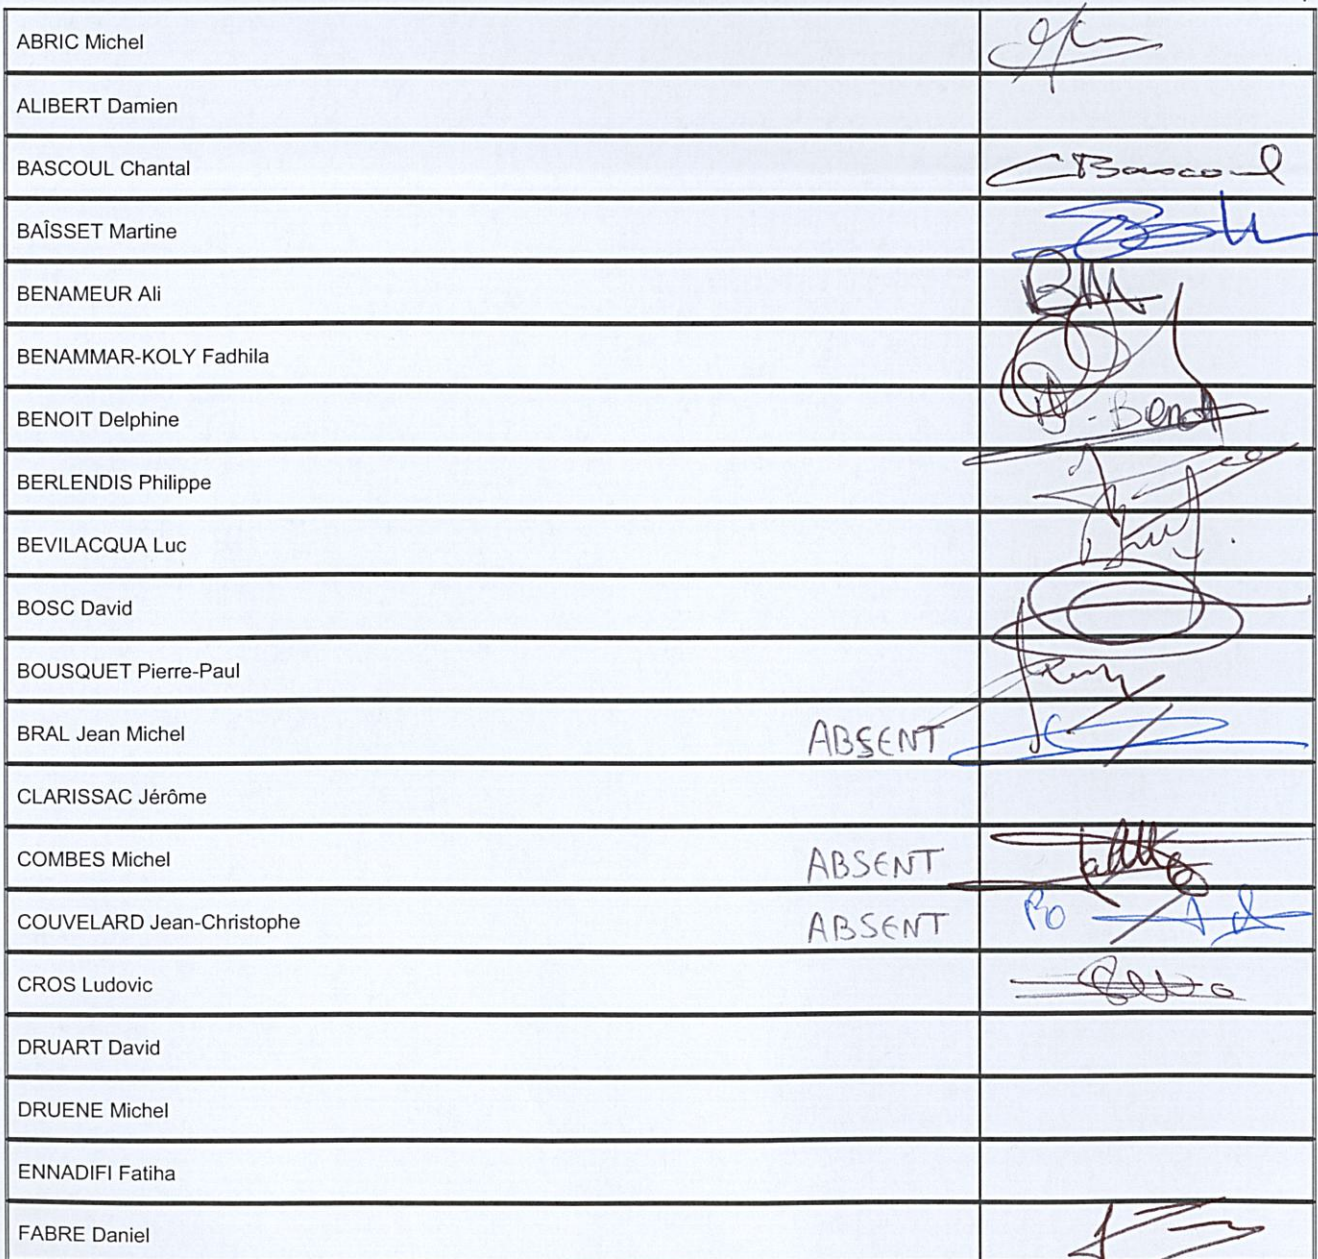 ABRIC Michel
ALIBERT Damien
BASCOUL Chantal CBascoul
BAÏSSET Martine
BENAMEUR Ali
BENAMMAR-KOLY Fadhila
BENOIT Delphine Benoit
BERLENDIS Philippe
BEVILACQUA Luc
BOSC David
BOUSQUET Pierre-Paul
BRAL Jean Michel ABSENT
CLARISSAC Jérôme
COMBES Michel ABSENT
COUVELARD Jean-Christophe ABSENT
CROS Ludovic
DRUART David
DRUENE Michel
ENNADIFI Fatiha
FABRE Daniel